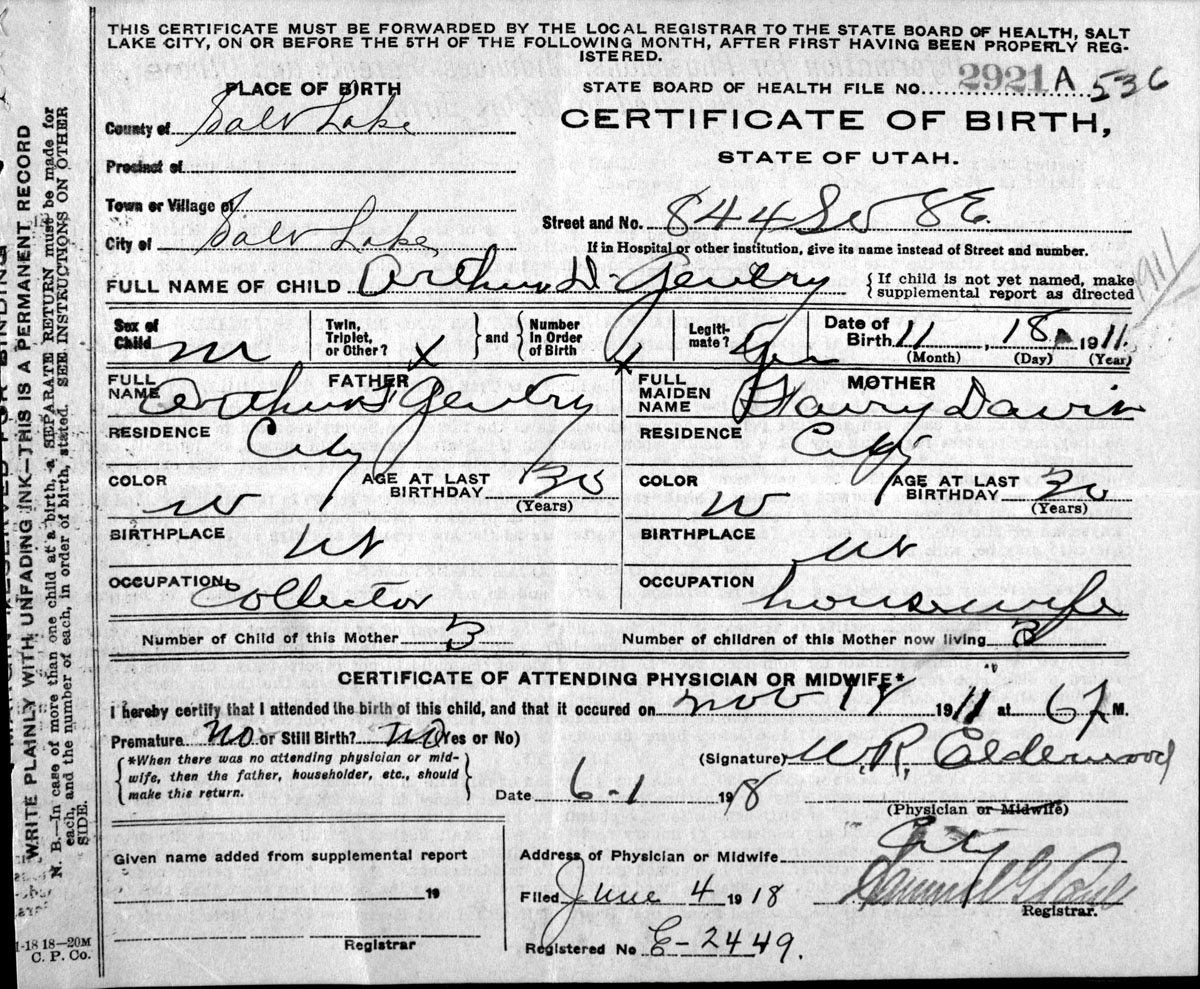 THIS CERTIFICATE MUST BE FORWARDED BY THE LOCAL REGISTRAR TO THE STATE BOARD OF HEALTH, SALT
LAKE CITY, ON OR BEFORE THE 5TH OF THE FOLLOWING MONTH, AFTER FIRST HAVING BEEN PROPERLY REG-
ISTERED.
STATE BOARD OF HEALTH FILE NO. 2921 A 536
PLACE OF BIRTH
CERTIFICATE OF BIRTH,
STATE OF UTAH.
County of Salt Lake
Precinct of
Town or Village of
City of Salt Lake
Street and No. 844 So 8E
If in Hospital or other institution, give its name instead of Street and number.
FULL NAME OF CHILD Arthur D. Gentry
{ If child is not yet named, make
supplemental report as directed
1911
Sex of Child m
Twin, Triplet, or Other? X
and { Number in Order of Birth X
Legiti-mate? Yes
Date of Birth 11, 18, 1911
(Month) (Day) (Year)
FATHER
FULL NAME Arthur Gentry
RESIDENCE City
COLOR W
AGE AT LAST BIRTHDAY 30
(Years)
BIRTHPLACE Ut
OCCUPATION Collector
MOTHER
FULL MAIDEN NAME Davis
RESIDENCE City
COLOR W
AGE AT LAST BIRTHDAY 30
(Years)
BIRTHPLACE Ut
OCCUPATION housewife
Number of Child of this Mother 3
Number of children of this Mother now living 3
CERTIFICATE OF ATTENDING PHYSICIAN OR MIDWIFE*
I hereby certify that I attended the birth of this child, and that it occured on Nov 18 1911 at 6 M.
Premature No or Still Birth? No (Yes or No)
{ *When there was no attending physician or mid-
wife, then the father, householder, etc., should
make this return. }
(Signature) W.R. Calderwood
Date 6-1 1918
(Physician or Midwife)
Given name added from supplemental report
19
Registrar
Address of Physician or Midwife City
Filed June 4 1918
Samuel G Paul
Registrar.
Registered No E-2449.
MARGIN RESERVED FOR BINDING
WRITE PLAINLY WITH UNFADING INK—THIS IS A PERMANENT RECORD
N. B.—In case of more than one child at a birth, a SEPARATE RETURN must be made for
each, and the number of each, in order of birth, stated. SEE INSTRUCTIONS ON OTHER
SIDE.
1-18 18—20M
C. P. Co.